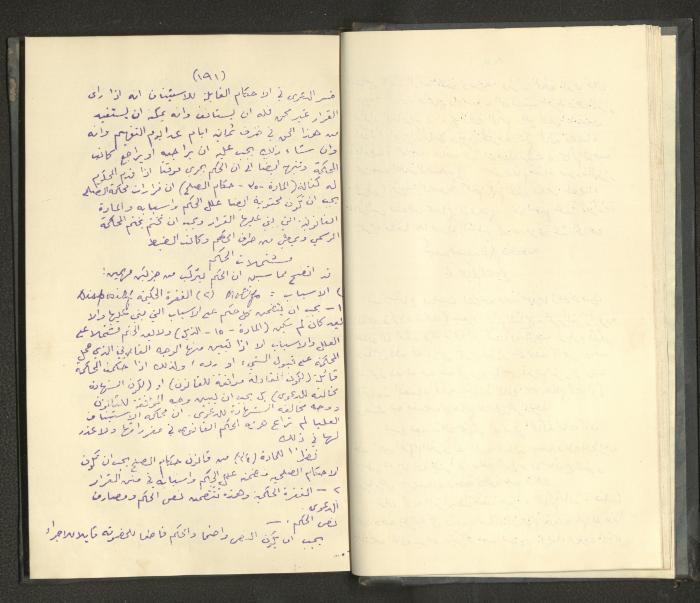 (١٩١)
خسر الدعوى في الاحكام القابلة للاستئناف انه اذا رأى
القرار غير محق فله ان يستأنف وانه يمكنه ان يستفيد
من هذا الحق في ظرف ثمانية ايام عد اليوم التفهيم وانه
وان شاء ذلك يجب عليه ان يراجعه او يراجع كاتب
المحكمة وينبه ايضا الى ان الحكم يجري موقتا اذا قدم المحكوم
له كفالة (المادة - ٧٥ - حكام الصلح) ان قرارات محكمة الصلح
يجب ان تكون محتوية ايضا علل الحكم واسبابه والمادة
القانونية التي بني عليها القرار ويجب ان تختم بختم المحكمة
الرسمي وتمضى من طرف الحاكم وكاتب الضبط
مشتملات الحكم
قد اتضح مما سبق ان الحكم يتركب من جزئين مهمين:
١) الاسباب = Motifs (٢) الفقرة الحكمية Dispositif
١ - يجب ان يتضمن كل حكم على الاسباب التي بني عليها والا
يعد كان لم يكن (المادة - ١٥ - الذيل) ولا يعد الحكم مشتملا على
العلل والاسباب الا اذا تبين منها الوجه القانوني الذي حمل
المحكمة على قبول الشيء او رده، ولذلك اذا حكمت المحكمة
قائلة (لكون المقاولة موافقة للقانون) او (لكون الشهادة
مخالفة للدعوى) بل يجب ان يبين وجه الموافقة للقانون
ووجه مخالفة الشهادة للدعوى. ان محكمة الاستئناف
العليا لم تراع هذه الحكم القانوني في مقرراتها ولا عذر
لها في ذلك
نظرا للمادة من قانون حكام الصلح يجب ان تكون
الاحكام الصلحية متضمنة علل الحكم واسبابه في متن القرار
٢ - الفقرة الحكمية وهذه تتضمن نص الحكم ومصارف
الدعوى.
نص الحكم: -
يجب ان يكون النص واضحا والحكم فاصلا للخصومة قابلا للاجراء